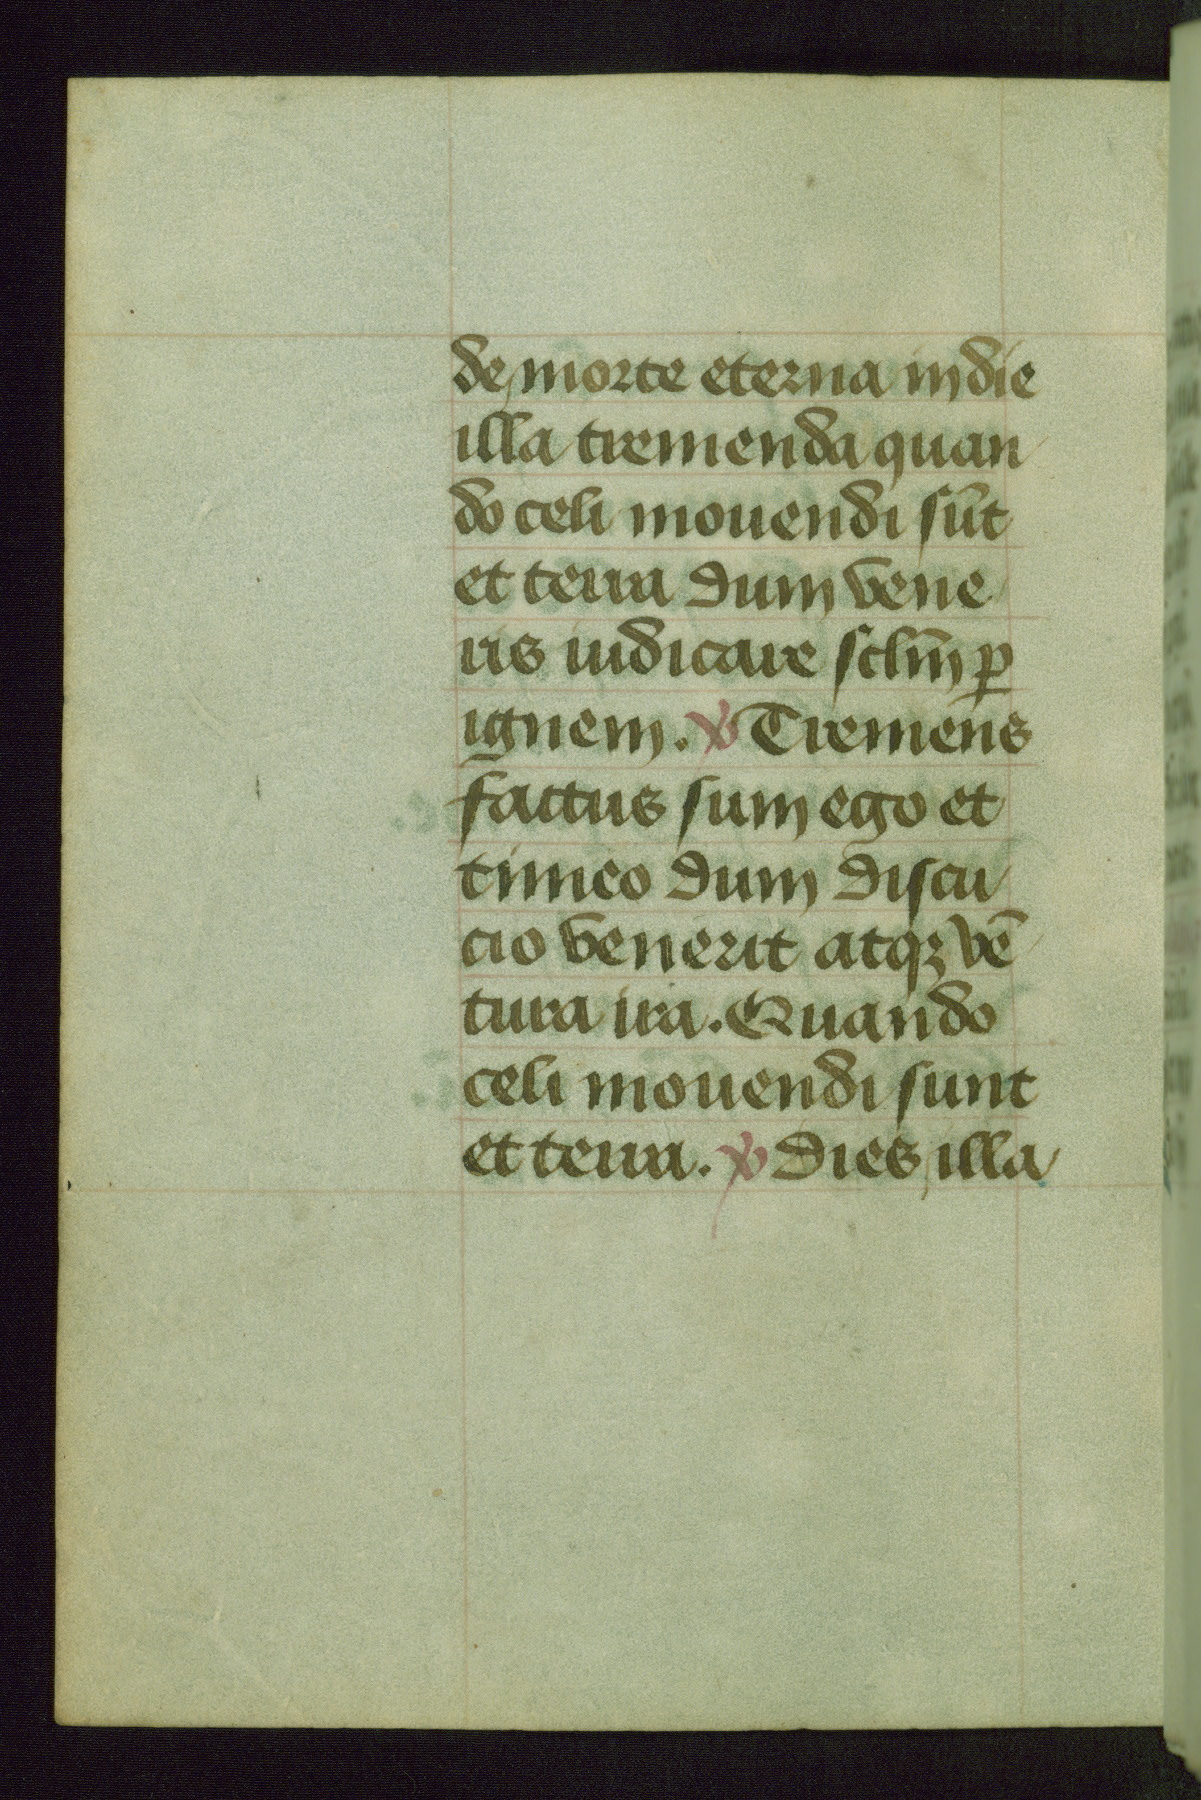 de morte eterna in die
illa tremenda quan
do celi mouendi sūt
et terra dum vene
ris iudicare sclm̄ ꝑ
ignem. ℣ Tremens
factus sum ego et
timeo dum discu
cio venerit atqꝫ vē
tura ira. Quando
celi mouendi sunt
et terra. ℣ Dies illa